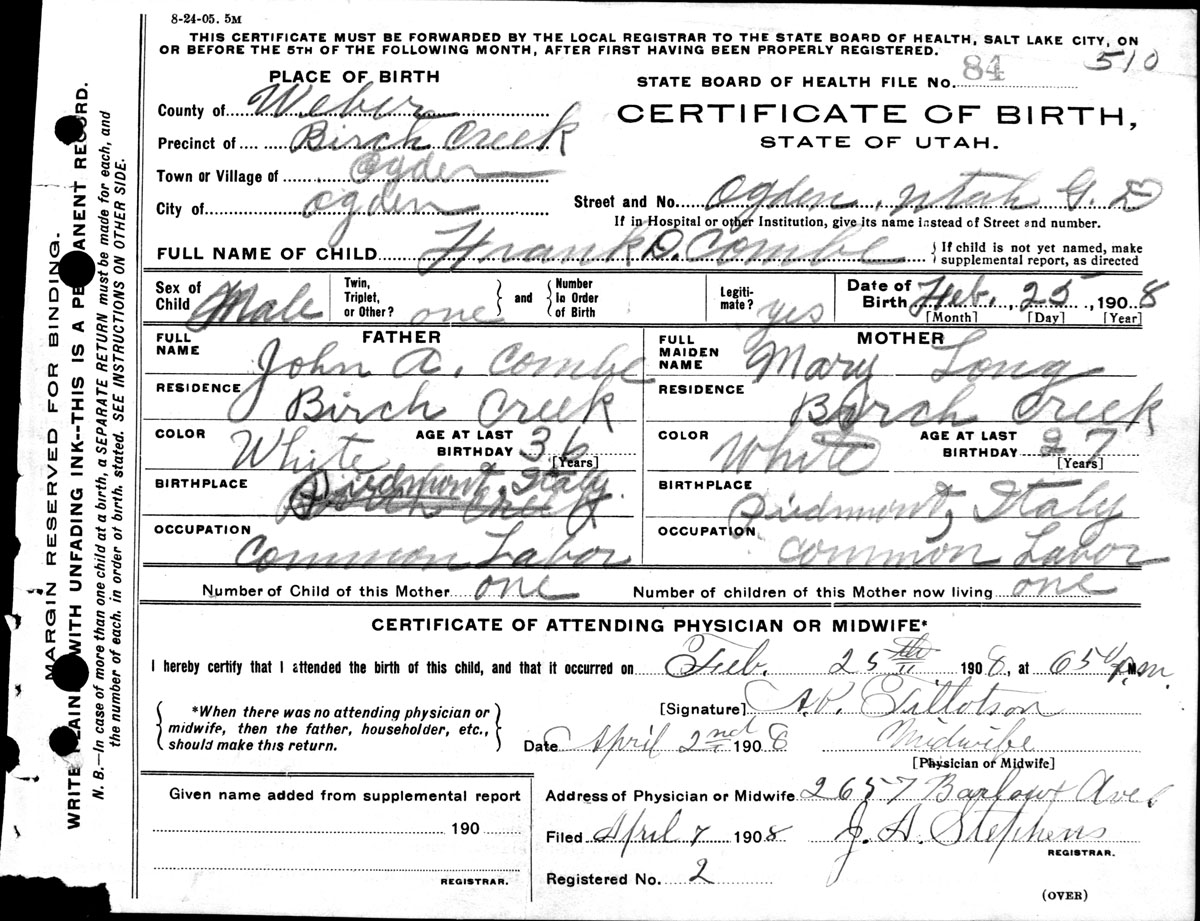 8-24-05. 5M
THIS CERTIFICATE MUST BE FORWARDED BY THE LOCAL REGISTRAR TO THE STATE BOARD OF HEALTH, SALT LAKE CITY, ON
OR BEFORE THE 5TH OF THE FOLLOWING MONTH, AFTER FIRST HAVING BEEN PROPERLY REGISTERED.
510
PLACE OF BIRTH
STATE BOARD OF HEALTH FILE No. 84
County of Weber
CERTIFICATE OF BIRTH,
STATE OF UTAH.
Precinct of Birch Creek
Town or Village of Ogden
City of Ogden
Street and No. Ogden, Utah G. D
If in Hospital or other Institution, give its name instead of Street and number.
FULL NAME OF CHILD Frank D. Combe
If child is not yet named, make
supplemental report, as directed
Sex of Child Male
Twin, Triplet, or Other? one
and
Number In Order of Birth
Legiti-mate? yes
Date of Birth Feb. 25, 1908
[Month] [Day] [Year]
FATHER
FULL NAME John A. Combe
RESIDENCE Birch Creek
COLOR White
AGE AT LAST BIRTHDAY 36
[Years]
BIRTHPLACE Piedmont, Italy.
OCCUPATION Common Labor
MOTHER
FULL MAIDEN NAME Mary Long
RESIDENCE Birch Creek
COLOR White
AGE AT LAST BIRTHDAY 27
[Years]
BIRTHPLACE Piedmont, Italy
OCCUPATION Common Labor
Number of Child of this Mother one
Number of children of this Mother now living one
CERTIFICATE OF ATTENDING PHYSICIAN OR MIDWIFE*
I hereby certify that I attended the birth of this child, and that it occurred on Feb. 25th 1908, at 6 50 p.m.
*When there was no attending physician or
midwife, then the father, householder, etc.,
should make this return.
[Signature] Tillotson
Date April 2nd 1908 Midwife
[Physician or Midwife]
Given name added from supplemental report
190
REGISTRAR.
Address of Physician or Midwife 2657 Barlow Ave
Filed April 7 1908 J. A. Stephens
REGISTRAR.
Registered No. 2
(OVER)
MARGIN RESERVED FOR BINDING.
WRITE PLAINLY WITH UNFADING INK--THIS IS A PERMANENT RECORD.
N. B.—In case of more than one child at a birth, a SEPARATE RETURN must be made for each, and
the number of each, in order of birth, stated. SEE INSTRUCTIONS ON OTHER SIDE.